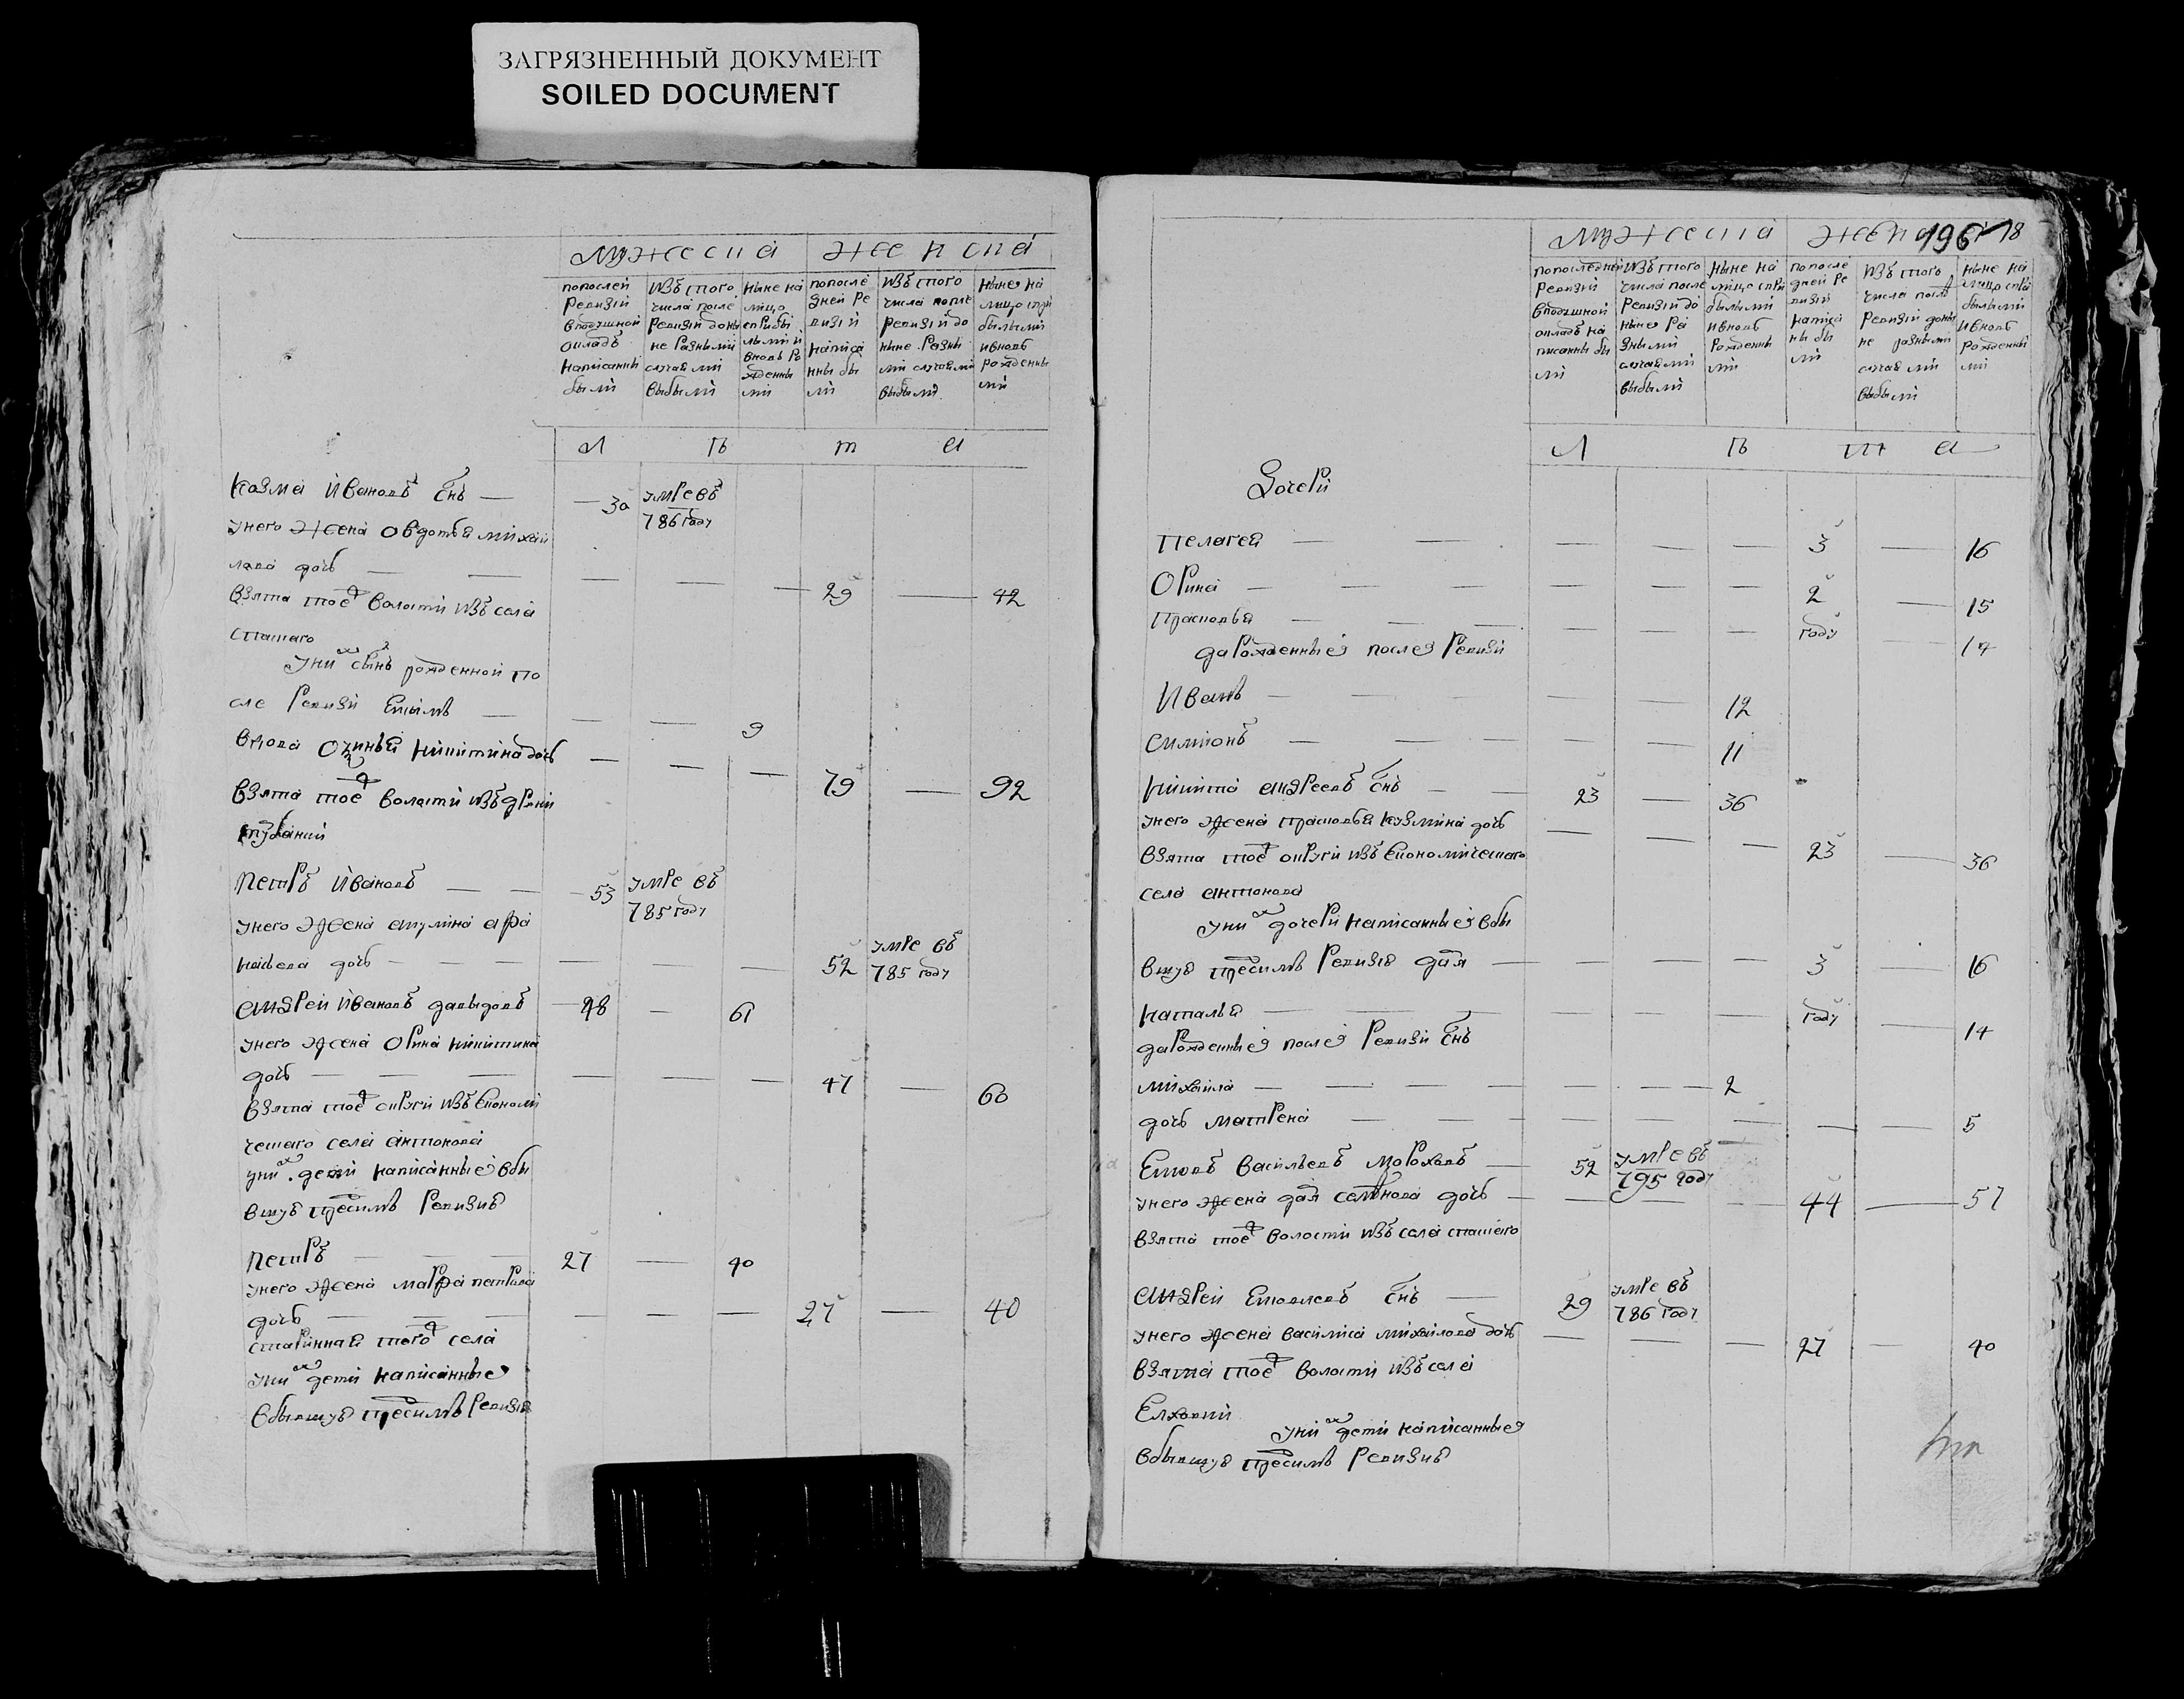 ЗАГРЯЗНЕННЫЙ ДОКУМЕНТ
SOILED DOCUMENT
Мужеска Женска
попослей ревизiй вподушной окладъ написанны были
изъ того числа после ревизiй доны не разными случаями выбыли
ныне на лицо сприбылыми и вновь рожденны ми
попоследней ревизiй написанны были
изъ того числа после ревизiй до ныне разными случаями выбыли
ныне на лицо сприбылыми и вновь рожденны ми
Л Ѣ т а
Козма Ивановъ снъ — 30 умре въ 786 году
унего жена Овдотья михай
лова дочь — 29 — 42
взята тое ж волости изъ села
спаскаго
уних сынъ рожденной по
сле ревизи Екимъ — 9
вдова никитина дочь — 79 — 92
взята тое ж волости изъ дрвни
Петръ Ивановъ — 53 умре въ 785 году
унего жена акулина афа
насьева дочь — 52 умре въ 785 году
андрей Ивановъ давыдовъ — 48 — 61
унего жена Орина никитина
дочь — 47 — 60
взята тое ж округи изъ Економи
ческаго села антонова
уних дети написанные вбы
вшую пред симъ ревизию
Петръ — 27 — 40
унего жена марфа петрова
дочь — 27 — 40
старинная того ж села
уних дети написанные
вбывшую пред симъ ревизию
Мужеска 196 18
попоследней ревизiй вподушной окладъ написанны были
изъ того числа после ревизiй до ныне разными случаями выбыли
ныне на лицо сприбылыми и вновь рожденны ми
попоследней ревизiй написаны были
изъ того числа после ревизiй доны не разными случаями выбыли
ныне на лицо сприбылыми и вновь рожденны ми
Л Ѣ т а
Дочери
Пелагея — 3 — 16
Орина — 2 — 15
Прасковья — году — 14
да рожденные после ревизи
Иванъ — 12
Симионъ — 11
Никита андреевъ снъ — 23 — 36
унего жена прасковья кузмина дочь — 23 — 36
взята тое ж округи изъ Економическаго
села антонова
уних дочери написанные вбы
вшую пред симъ ревизию — 3 — 16
наталья — году — 14
да рожденные после ревизи снъ
михайла — 2
дочь матрена — 5
василевъ — 52 умре въ 795 году
унего жена дочь — 44 — 57
взята тое ж волости изъ села спаскаго
андрей снъ — 29 умре въ 786 году
унего жена василиса михайлова дочь — 27 — 40
взята тое ж волости изъ села
Елховки
уних дети написанные
вбывшую пред симъ ревизию